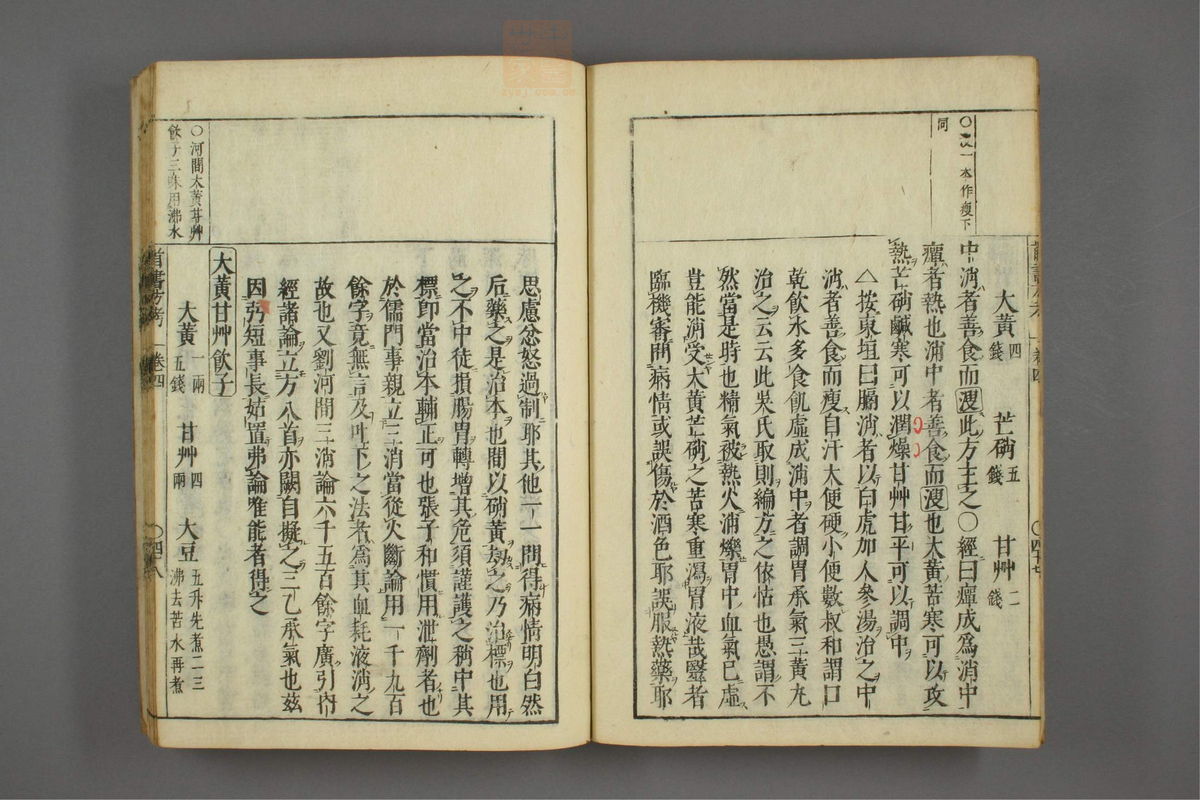 ○一本作瘦下
同
大黃四錢 芒硝五錢 甘艸二錢
中消者善食而溲此方主之○經曰癉成為消中
癉者熱也消中者善食而溲也大黃苦寒可以攻
熱芒硝鹹寒可以潤燥甘艸甘平可以調中
△按東垣曰膈消者以白虎加人參湯治之中
消者善食而瘦自汗大便硬小便數叔和謂口
乾飲水多食飢虛成消中者調胃承氣三黃丸
治之云云此吳氏取則編方之依怙也愚謂不
然當是時也精氣被熱火消爍胃中血氣已虛
豈能消受大黃芒硝之苦寒重瀉胃液哉毉者
臨機審問病情或誤傷於酒色耶誤服熱藥耶
思慮忿怒過制耶其他一一問得病情明白然
后藥之是治本也間以硝黃劫之乃治標也用
之不中徒損腸胃轉增其危須謹護之稍中其
標卽當治本輔正可也張子和慣用泄劑者也
於儒門事親立三消當從火斷論用一千九百
餘字竟無言及吐下之法者為其血耗液消之
故也又劉河間三消論六千五百餘字廣引內
經諸論立方八首亦闕自擬之三乙承氣也茲
因劣短事長姑置弗論唯能者得之
○河間大黃甘艸
飲子三味用沸水
大黃甘艸飲子
大黃一兩五錢 甘艸四兩 大豆五升先煮二三沸去苦水再煮
卷四